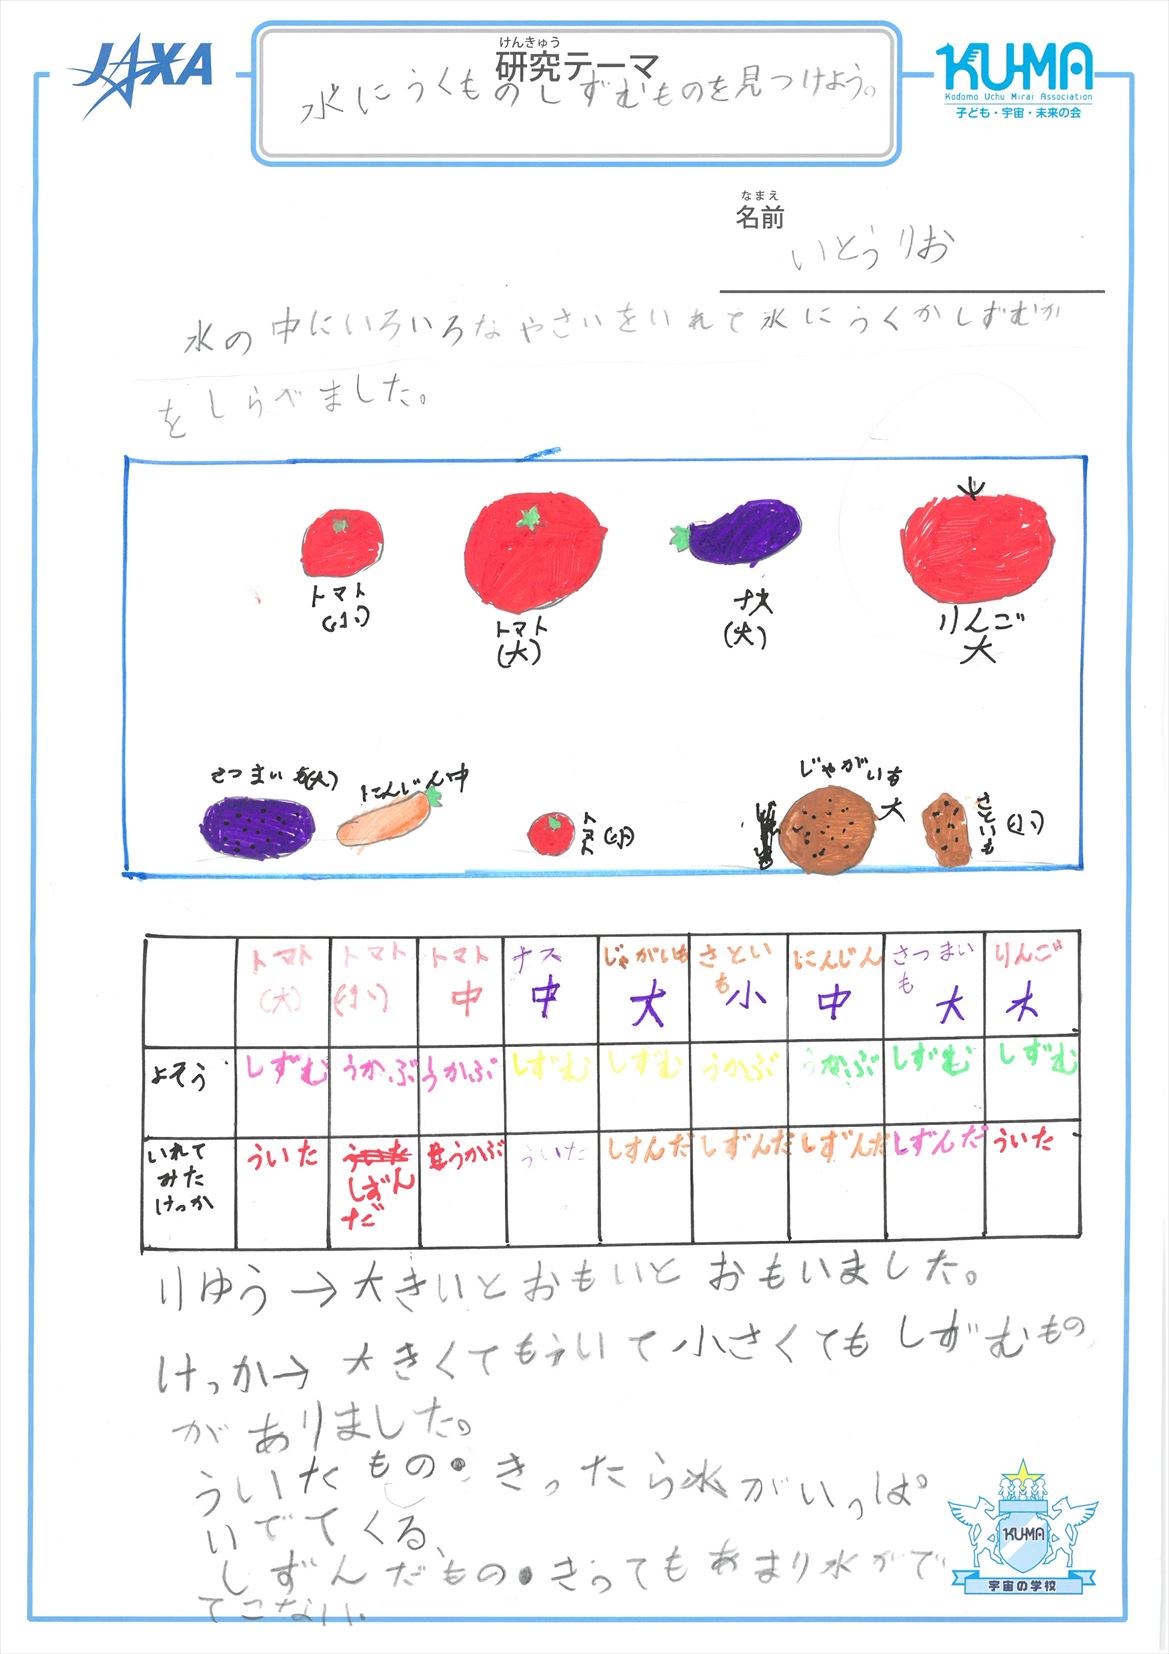 JAXA
けんきゅう
研究テーマ
水にうくものしずむものを見つけよう。
KU-MA
Kodomo Uchu Mirai Association
子ども・宇宙・未来の会
なまえ
名前
いとうりお
水の中にいろいろなやさいをいれて水にうくかしずむか
をしらべました。
トマト
(小)
トマト
(大)
ナス
(大)
りんご
大
さつまいも(大)
にんじん中
トマト(小)
じゃがいも
大
さといも(小)
トマト(大) トマト(小) トマト中 ナス中 じゃがいも大 さといも小 にんじん中 さつまいも大 りんご大
よそう しずむ うかぶ うかぶ しずむ しずむ うかぶ うかぶ しずむ しずむ
いれてみたけっか ういた しずんだ うかぶ ういた しずんだ しずんだ しずんだ しずんだ ういた
りゆう→大きいとおもいとおもいました。
けっか→大きくてもういて小さくてもしずむもの
がありました。
ういたもの・きったら水がいっぱ
いでてくる、
しずんだもの・きってもあまり水がで
てこない。
KU-MA
宇宙の学校